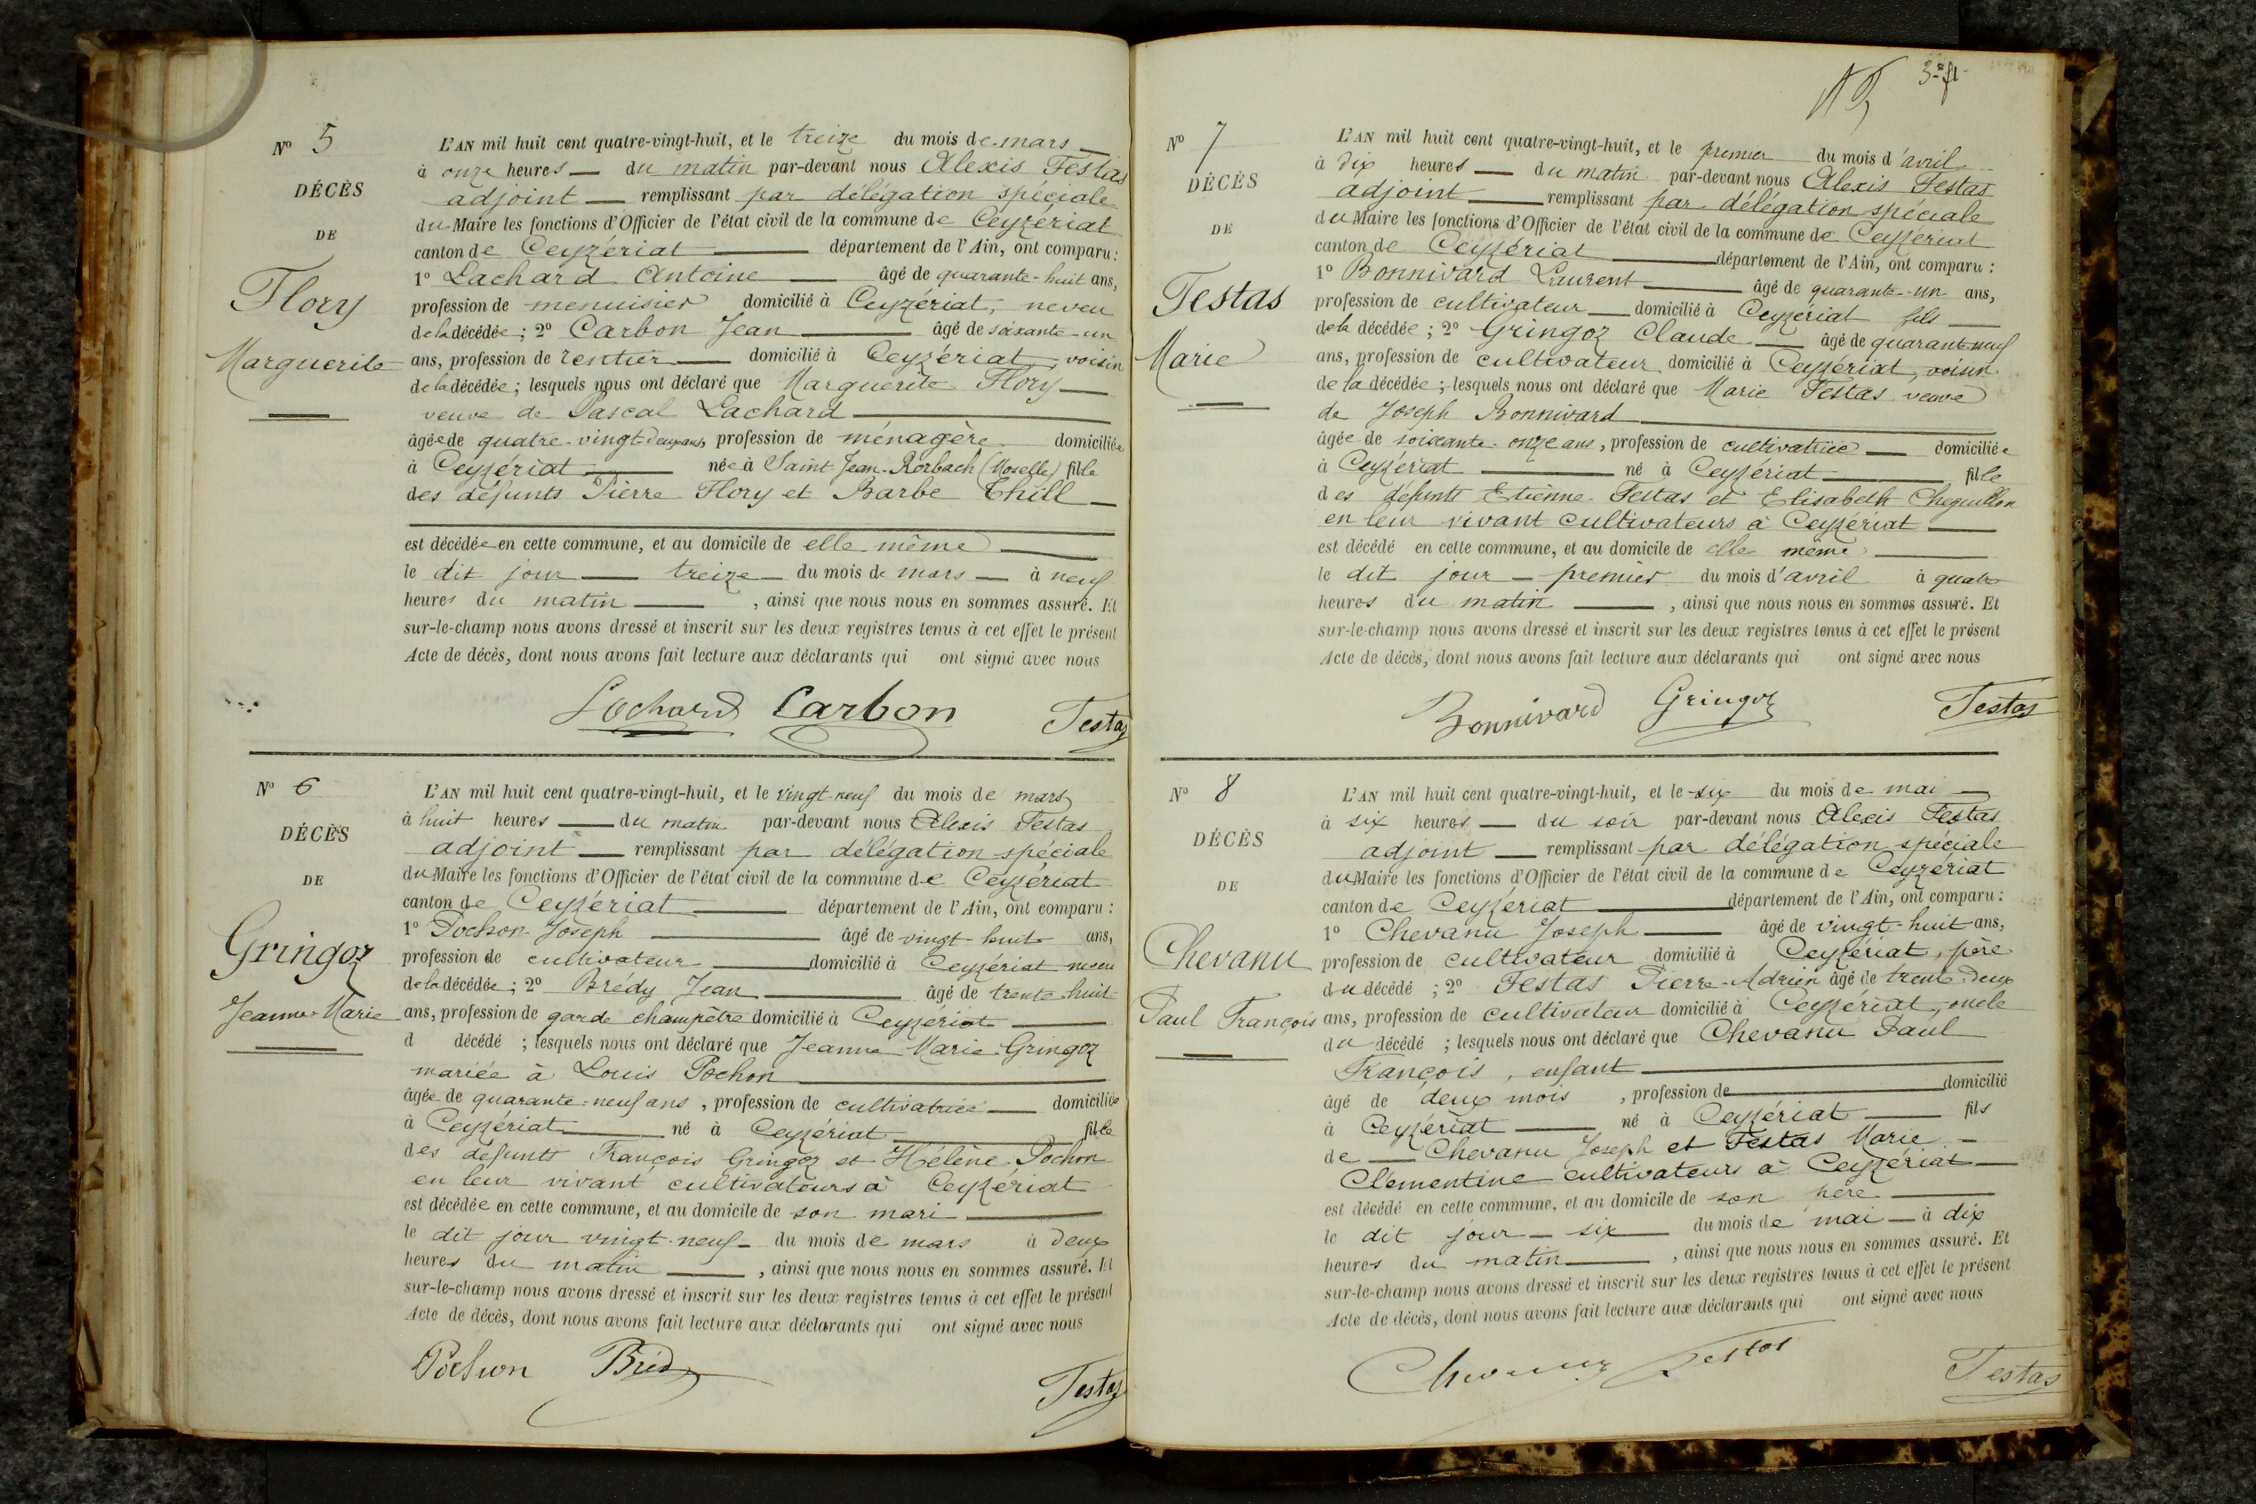 N° 5
DÉCÈS
DE
Flory
Marguerite
L'AN mil huit cent quatre-vingt-huit, et le treize du mois de mars
à onze heures du matin par-devant nous Alexis Festas
adjoint remplissant par délégation spéciale
du Maire les fonctions d'Officier de l'état civil de la commune de Ceyzériat
canton de Ceyzériat département de l'Ain, ont comparu :
1° Lachard Antoine âgé de quarante-huit ans,
profession de menuisier domicilié à Ceyzériat, neveu
de la décédée ; 2° Carbon Jean âgé de soixante-un
ans, profession de rentier domicilié à Ceyzériat, voisin
de la décédée ; lesquels nous ont déclaré que Marguerite Flory
veuve de Pascal Lachard
âgée de quatre-vingt-deux ans, profession de ménagère domiciliée
à Ceyzériat née à Saint-Jean-Rorbach (Moselle) fille
des défunts Pierre Flory et Barbe Thill
est décédée en cette commune, et au domicile de elle même
le dit jour treize du mois de mars à neuf
heures du matin , ainsi que nous nous en sommes assuré. Et
sur-le-champ nous avons dressé et inscrit sur les deux registres tenus à cet effet le présent
Acte de décès, dont nous avons fait lecture aux déclarants qui ont signé avec nous
Lachard Carbon Festas
N° 6
DÉCÈS
DE
Gringoz
Jeanne-Marie
L'AN mil huit cent quatre-vingt-huit, et le vingt-neuf du mois de mars
à huit heures du matin par-devant nous Alexis Festas
adjoint remplissant par délégation spéciale
du Maire les fonctions d'Officier de l'état civil de la commune de Ceyzériat
canton de Ceyzériat département de l'Ain, ont comparu :
1° Pochon Joseph âgé de vingt-huit ans,
profession de cultivateur domicilié à Ceyzériat neveu
de la décédée ; 2° Brédy Jean âgé de trente-huit
ans, profession de garde champêtre domicilié à Ceyzériat
d décédé ; lesquels nous ont déclaré que Jeanne-Marie Gringoz
mariée à Louis Pochon
âgée de quarante-neuf ans, profession de cultivatrice domiciliée
à Ceyzériat né à Ceyzériat fille
des défunts François Gringoz et Hélène Pochon
en leur vivant cultivateurs à Ceyzériat
est décédée en cette commune, et au domicile de son mari
le dit jour vingt-neuf du mois de mars à deux
heures du matin , ainsi que nous nous en sommes assuré. Et
sur-le-champ nous avons dressé et inscrit sur les deux registres tenus à cet effet le présent
Acte de décès, dont nous avons fait lecture aux déclarants qui ont signé avec nous
Pochon Brédy Festas
N° 7
DÉCÈS
DE
Festas
Marie
L'AN mil huit cent quatre-vingt-huit, et le premier du mois d'avril
à dix heures du matin par-devant nous Alexis Festas
adjoint remplissant par délégation spéciale
du Maire les fonctions d'Officier de l'état civil de la commune de Ceyzériat
canton de Ceyzériat département de l'Ain, ont comparu :
1° Bonnivard Laurent âgé de quarante-un ans,
profession de cultivateur domicilié à Ceyzériat fils
de la décédée ; 2° Gringoz Claude âgé de quarante-neuf
ans, profession de cultivateur domicilié à Ceyzériat, voisin
de la décédée ; lesquels nous ont déclaré que Marie Festas veuve
de Joseph Bonnivard
âgée de soixante-onze ans, profession de cultivatrice domiciliée
à Ceyzériat né à Ceyzériat fille
des défunts Etienne Festas et Elisabeth
en leur vivant cultivateurs à Ceyzériat
est décédé en cette commune, et au domicile de elle même
le dit jour premier du mois d'avril à quatre
heures du matin , ainsi que nous nous en sommes assuré. Et
sur-le-champ nous avons dressé et inscrit sur les deux registres tenus à cet effet le présent
Acte de décès, dont nous avons fait lecture aux déclarants qui ont signé avec nous
Bonnivard Gringoz Festas
N° 8
DÉCÈS
DE
Chevanu
Paul François
L'AN mil huit cent quatre-vingt-huit, et le six du mois de mai
à six heures du soir par-devant nous Alexis Festas
adjoint remplissant par délégation spéciale
du Maire les fonctions d'Officier de l'état civil de la commune de Ceyzériat
canton de Ceyzériat département de l'Ain, ont comparu :
1° Chevanu Joseph âgé de vingt-huit ans,
profession de cultivateur domicilié à Ceyzériat, père
du décédé ; 2° Festas Pierre-Adrien âgé de trente-deux
ans, profession de cultivateur domicilié à Ceyzériat, oncle
du décédé ; lesquels nous ont déclaré que Chevanu Paul
François, enfant
âgé de deux mois , profession de domicilié
à Ceyzériat né à Ceyzériat fils
de Chevanu Joseph et Festas Marie
Clémentine cultivateurs à Ceyzériat
est décédé en cette commune, et au domicile de son père
le dit jour six du mois de mai à dix
heures du matin , ainsi que nous nous en sommes assuré. Et
sur-le-champ nous avons dressé et inscrit sur les deux registres tenus à cet effet le présent
Acte de décès, dont nous avons fait lecture aux déclarants qui ont signé avec nous
Chevanu Festas Festas